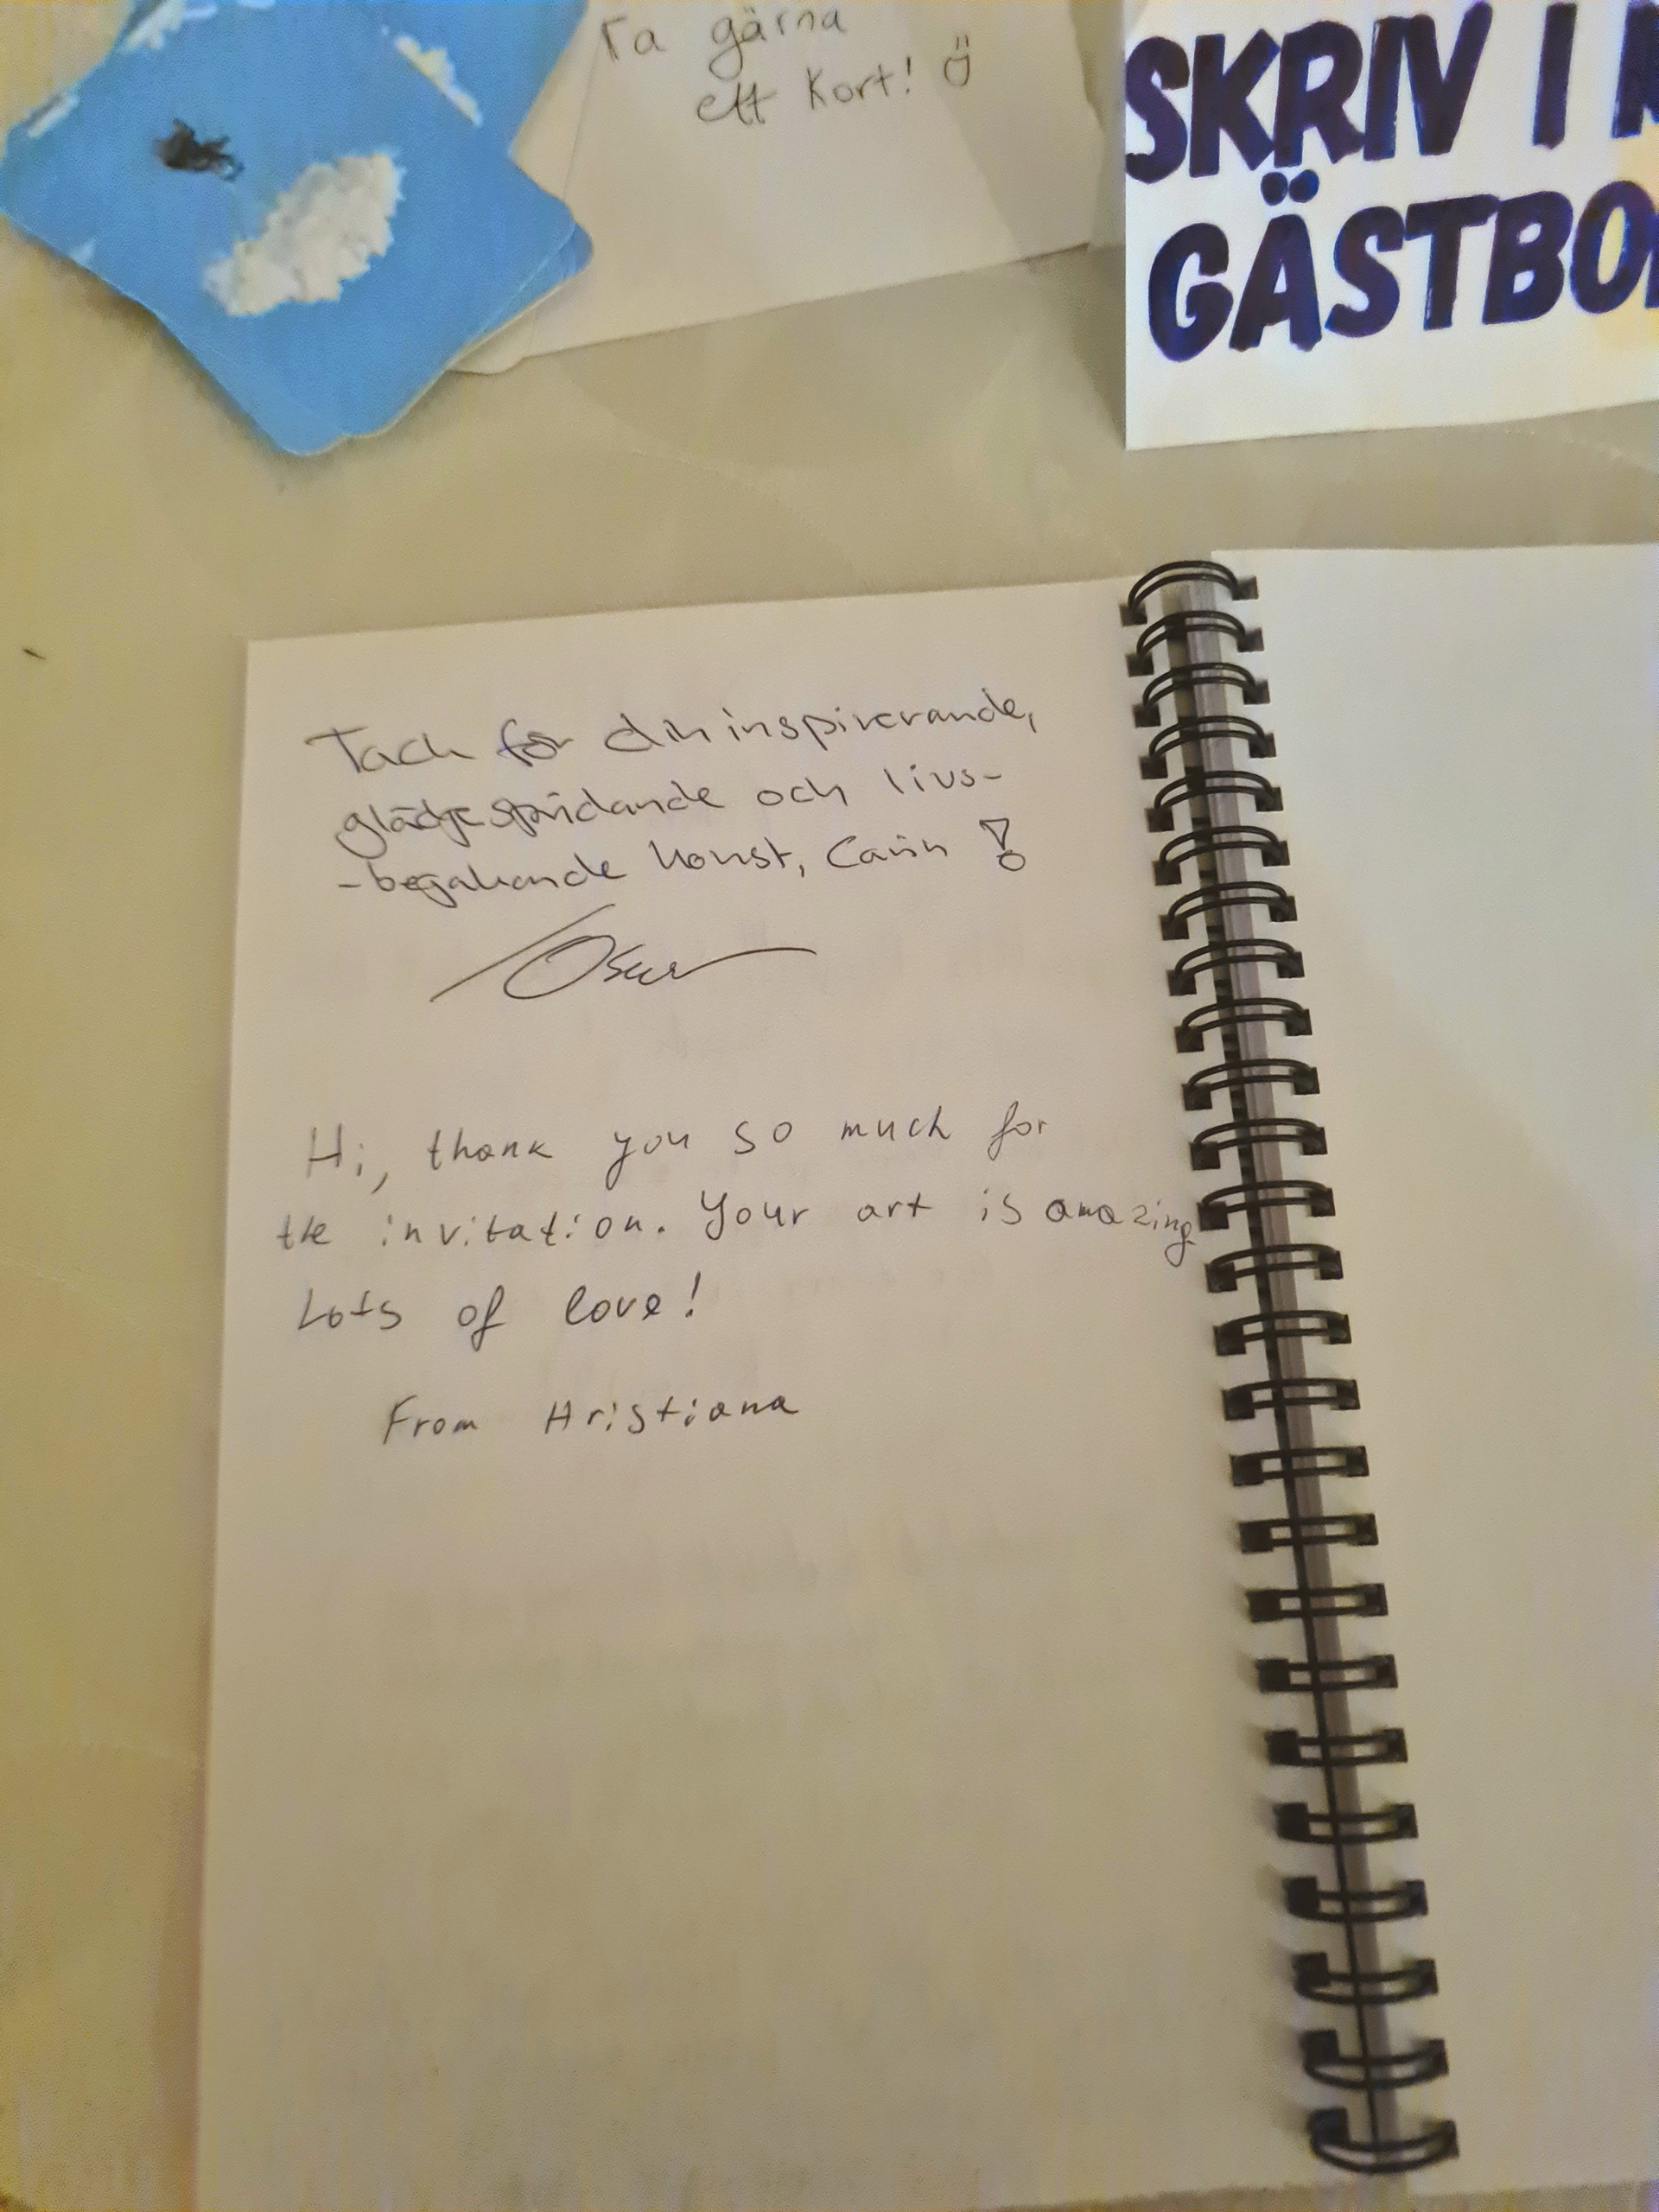 Ta gärna
ett kort!
SKRIV I
GÄSTBO
Tack för din inspirerande,
glädjespridande och livs-
-bejakande konst, Carin!
Hi, thank you so much for
the invitation. Your art is amazing
Lots of love!
From Hristiana